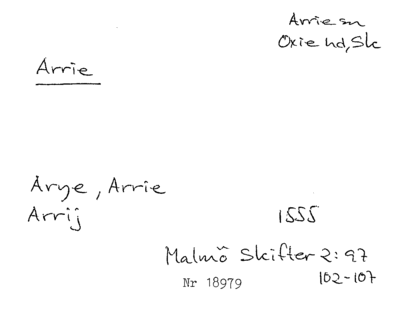 Arrie sn
Oxie hd, Sk
Arrie
Arye, Arrie
Arrij
1555
Malmö Skifter 2: 97
102-107
Nr 18979